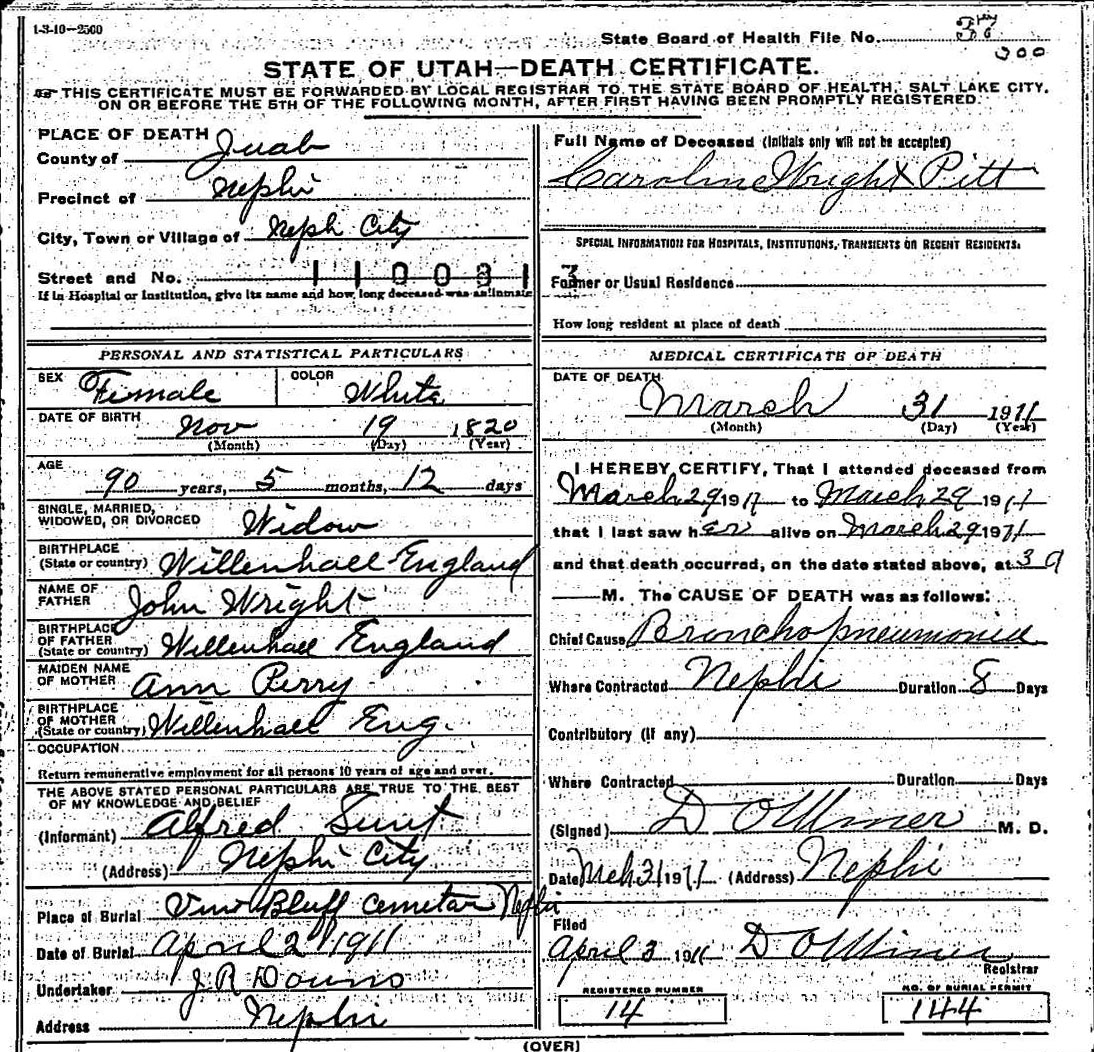 1-3-10—2500
State Board of Health File No. 37
300
STATE OF UTAH—DEATH CERTIFICATE.
THIS CERTIFICATE MUST BE FORWARDED BY LOCAL REGISTRAR TO THE STATE BOARD OF HEALTH, SALT LAKE CITY,
ON OR BEFORE THE 5TH OF THE FOLLOWING MONTH, AFTER FIRST HAVING BEEN PROMPTLY REGISTERED.
PLACE OF DEATH
County of Juab
Precinct of Nephi
City, Town or Village of Neph City
Street and No. 110031
If in Hospital or Institution, give its name and how long deceased was an inmate
Full Name of Deceased (Initials only will not be accepted)
Caroline Wright Pitt
SPECIAL INFORMATION FOR HOSPITALS, INSTITUTIONS, TRANSIENTS OR RECENT RESIDENTS.
3
Former or Usual Residence
How long resident at place of death
PERSONAL AND STATISTICAL PARTICULARS
SEX Female COLOR White
DATE OF BIRTH Nov 19 1820
(Month) (Day) (Year)
AGE 90 years, 5 months, 12 days
SINGLE, MARRIED,
WIDOWED, OR DIVORCED Widow
BIRTHPLACE
(State or country) Willenhall England
NAME OF
FATHER John Wright
BIRTHPLACE
OF FATHER
(State or country) Willenhall England
MAIDEN NAME
OF MOTHER Ann Perry
BIRTHPLACE
OF MOTHER
(State or country) Willenhall Eng.
OCCUPATION
Return remunerative employment for all persons 10 years of age and over.
THE ABOVE STATED PERSONAL PARTICULARS ARE TRUE TO THE BEST
OF MY KNOWLEDGE AND BELIEF
(Informant) Alfred
(Address) Nephi City
Place of Burial Bluff Cemetar Nephi
Date of Burial April 2nd 1911
Undertaker J R
Address Nephi
MEDICAL CERTIFICATE OF DEATH
DATE OF DEATH
March 31 1911
(Month) (Day) (Year)
I HEREBY CERTIFY, That I attended deceased from
March 29 1911 to March 29 1911
that I last saw her alive on March 29 1911
and that death occurred, on the date stated above, at 3 a
M. The CAUSE OF DEATH was as follows:
Chief Cause Bronchopneumonia
Where Contracted Nephi Duration 8 Days
Contributory (If any)
Where Contracted Duration Days
(Signed) D O Miner M. D.
Date Mch 31 1911 (Address) Nephi
Filed
April 3 1911 D O Miner
Registrar
REGISTERED NUMBER
14
NO. OF BURIAL PERMIT
144
(OVER)